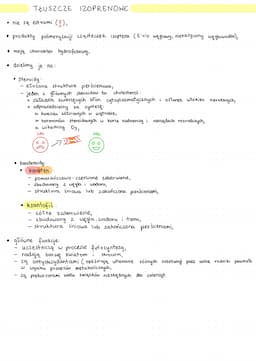 TŁUSZCZE IZOPRENOWE
• nie są estrami (!),
• produkty polimeryzacji cząsteczek izoprenu (5-cio węglowy, nienasycony węglowodór),
• mają charakter hydrofobowy,
• dzielimy je na:
• steroidy:
- cykliczna struktura pierścieniowa,
- jeden z głównych steroidów to cholesterol:
• składnik zwierzęcych błon cytoplazmatycznych i osłonek włókien nerwowych,
• odpowiedzialny za syntezę:
→ kwasów żółciowych w wątrobie,
→ hormonów steroidowych w korze nadnerczy i narządach rozrodczych,
→ witaminy D₃,
• karotenoidy
• karoten
- pomarańczowo-czerwone zabarwienie,
- zbudowany z węgla i wodoru,
- struktura liniowa lub zakończona pierścieniami,
• ksantofil
- żółte zabarwienie,
- zbudowany z węgla, wodoru i tlenu,
- struktura liniowa lub zakończona pierścieniami,
• główne funkcje:
- uczestniczą w procesie fotosyntezy,
- nadają barwę kwiatom i owocom,
- są antyoksydantami (opóźniają utlenianie różnych substancji przez wolne rodniki powstałe
w wyniku procesów metabolicznych,
- są prekursorami wielu związków niezbędnych dla zwierząt.